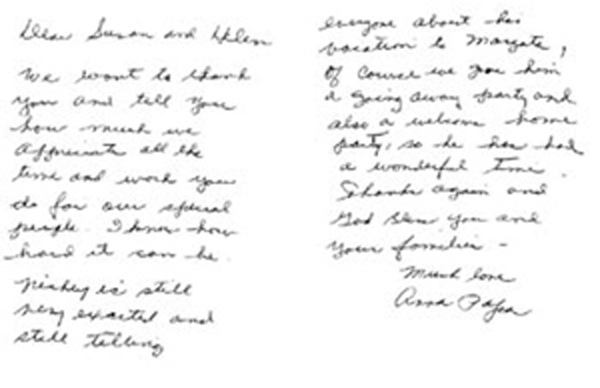 Dear Susan and Helen
We want to thank
you and tell you
how much we
appreciate all the
time and work you
do for our special
people. I know how
hard it can be.
is still
very excited and
still telling
everyone about his
vacation to Margate,
of course we gave him
a going away party and
also a welcome home
party, so he has had
a wonderful time.
Thanks again and
God Bless you and
your families -
Much love
Anna